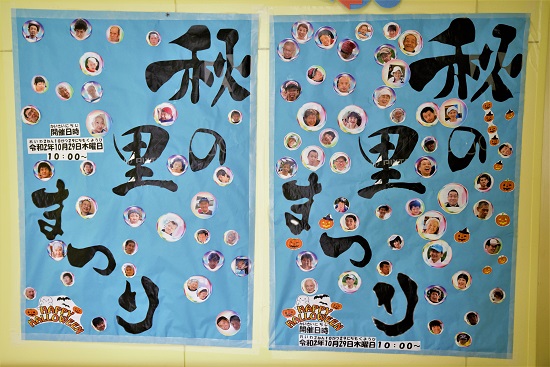 秋の
里
まつり
かいさいにちじ
開催日時
れいわ2ねん10がつ29にちもくようび
令和2年10月29日木曜日
10：00～
HAPPY
HALLOWEEN
秋の
里
まつり
HAPPY
HALLOWEEN
かいさいにちじ
開催日時
れいわ2ねん10がつ29にちもくようび
令和2年10月29日木曜日 10：00～